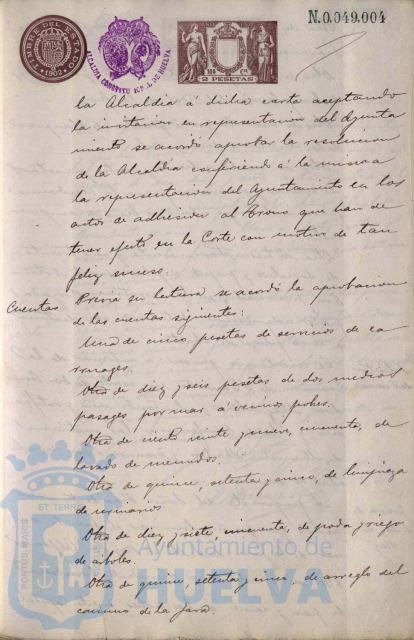 N.0.049.004
TIMBRE DEL ESTADO
1902
ALCALDIA CONSTITUCIONAL DE HUELVA
2 PESETAS
la Alcaldia á dicha carta aceptando
la invitacion en representacion del Ayunta
miento se acordó aprobar la resolucion
de la Alcaldia confiriendo á la misma
la representacion del Ayuntamiento en los
actos de adhesion al Trono que han de
tener efecto en la Corte con motivo de tan
feliz suceso.
Cuentas
Prévia su lectura se acordó la aprobacion
de las cuentas siguientes:
Una de cinco pesetas de servicios de ca
rruages.
Otra de diez y seis pesetas de dos medios
pasages por mar á vecinos pobres.
Otra de ciento veinte y nueve, cincuenta, de
lavado de menudos.
Otra de quince, setenta y cinco, de limpieza
de urinarios
Otra de diez y siete, cincuenta, de poda y riego
de arboles.
Otra de quince, setenta y cinco, de arreglo del
camino de la Jara.
PORTUS MARIS
ET TERR
Ayuntamiento de
HUELVA